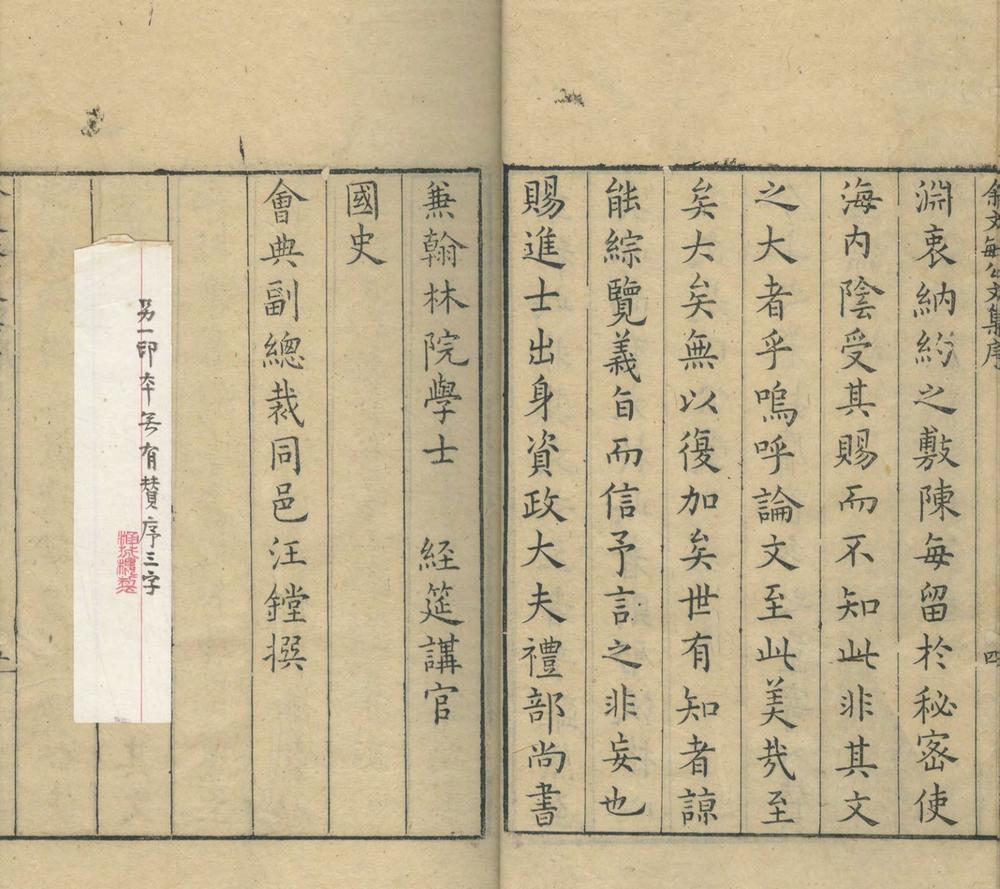 余文敏公文集序
四
淵衷納約之敷陳每留於秘宻使
海内陰受其賜而不知此非其文
之大者乎嗚呼論文至此美㢤至
矣大矣無以復加矣世有知者諒
能綜覽義旨而信予言之非妄也
賜進士出身資政大夫禮部尚書
兼翰林院學士　經筵講官
國史
會典副總裁同邑汪鏜撰
另一印本無有贊序三字